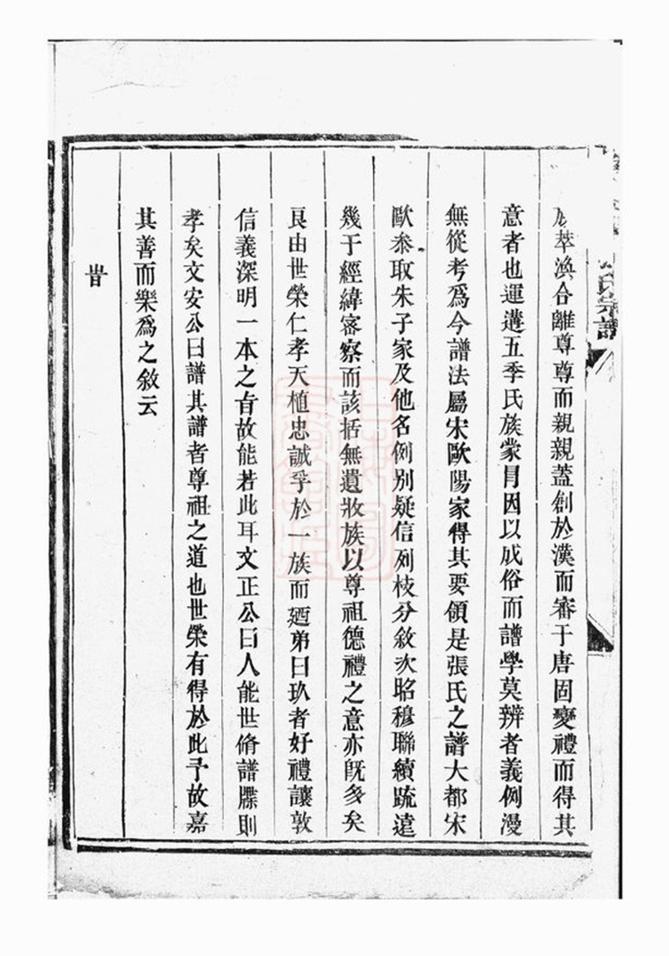 萃渙合離尊尊而親親蓋創於漢而審于唐固變禮而得其
意者也運遘五季氏族蒙冐因以成俗而譜學莫辨者義例漫
無從考爲今譜法屬宋歐陽家得其要領是張氏之譜大都宋
歐叅取朱子家及他名例别疑信列枝分敘次昭穆聯續踈遠
幾于經緯宻察而該括無遺收族以尊祖德禮之意亦旣多矣
良由世榮仁孝天植忠誠孚於一族而廼弟曰玖者好禮讓敦
信義深明一本之㫖故能若此耳文正公曰人能世脩譜牒則
孝矣文安公曰譜其譜者尊祖之道也世榮有得於此予故嘉
其善而樂爲之敘云
旹
氏宗譜